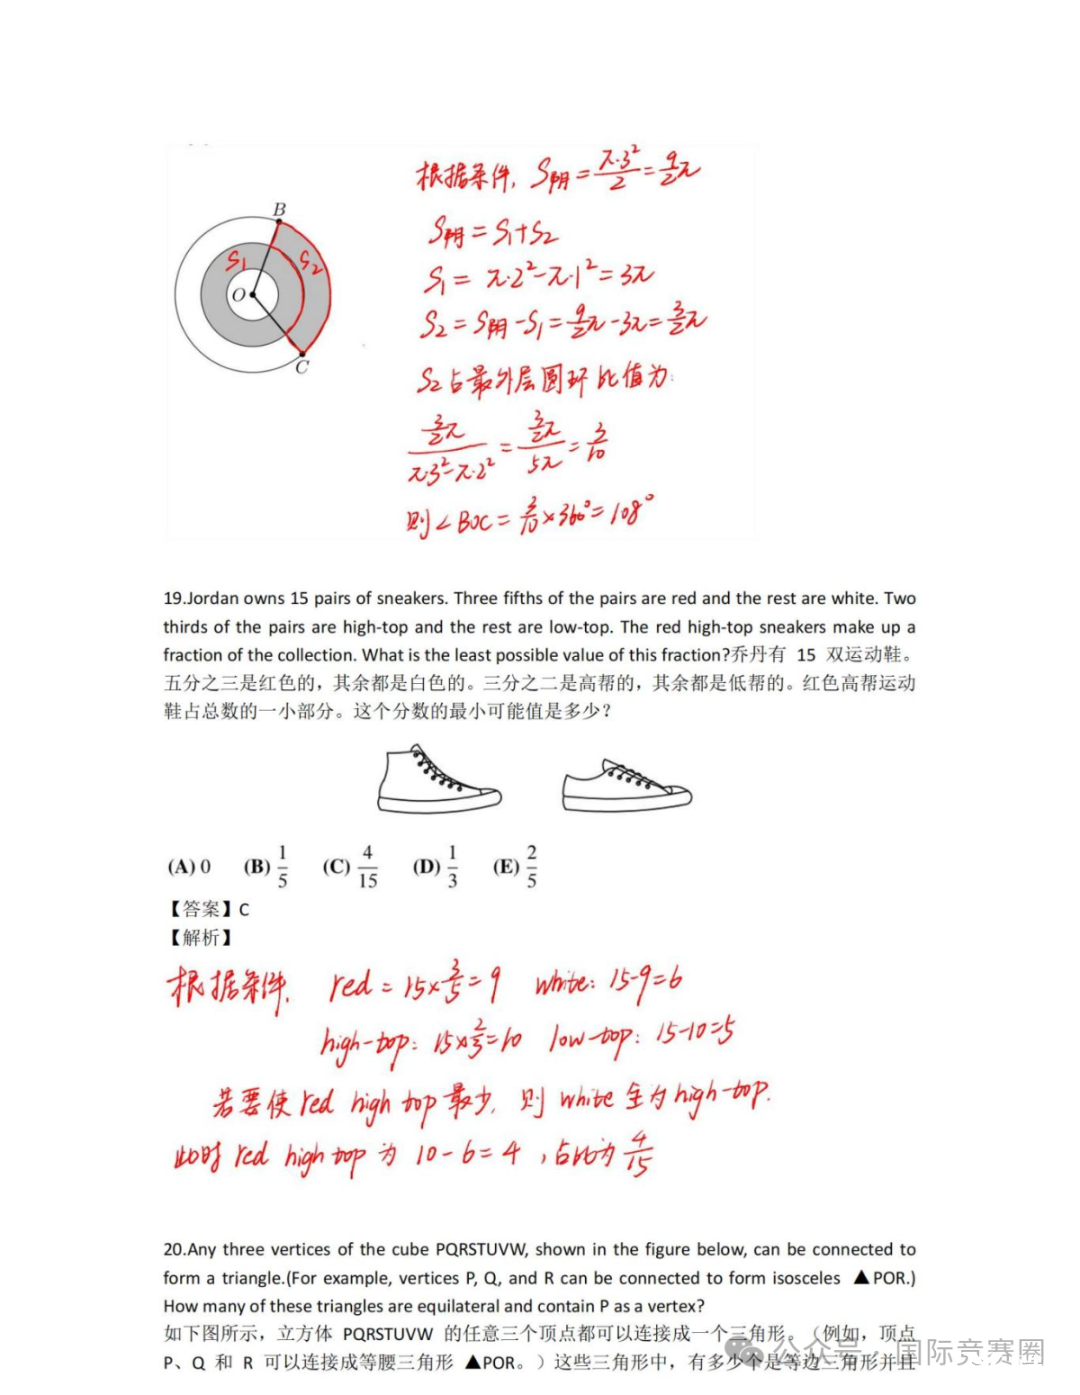 根据条件, S阴 = π·3²/2 = 9/2π
S阴 = S₁+S₂
S₁ = π·2²-π·1² = 3π
S₂ = S阴 - S₁ = 9/2π - 3π = 3/2π
S₂占最外层圆环比值为:
3/2π / π·3²-π·2² = 3/2π / 5π = 3/10
则∠BOC = 3/10 × 360° = 108°
B
S₁
S₂
O
C
19.Jordan owns 15 pairs of sneakers. Three fifths of the pairs are red and the rest are white. Two
thirds of the pairs are high-top and the rest are low-top. The red high-top sneakers make up a
fraction of the collection. What is the least possible value of this fraction?乔丹有 15 双运动鞋。
五分之三是红色的，其余都是白色的。三分之二是高帮的，其余都是低帮的。红色高帮运动
鞋占总数的一小部分。这个分数的最小可能值是多少？
(A) 0 (B) 1/5 (C) 4/15 (D) 1/3 (E) 2/5
【答案】C
【解析】
根据条件, red = 15×3/5 = 9 white: 15-9=6
high-top: 15×2/3=10 low-top: 15-10=5
若要使 red high top 最少, 则 white 全为 high-top.
此时 red high top 为 10-6=4 , 占比为 4/15
20.Any three vertices of the cube PQRSTUVW, shown in the figure below, can be connected to
form a triangle.(For example, vertices P, Q, and R can be connected to form isosceles ▲POR.)
How many of these triangles are equilateral and contain P as a vertex?
如下图所示，立方体 PQRSTUVW 的任意三个顶点都可以连接成一个三角形。（例如，顶点
P、Q 和 R 可以连接成等腰三角形 ▲POR。）这些三角形中，有多少个是等边三角形并且
公众号 · 国际竞赛圈